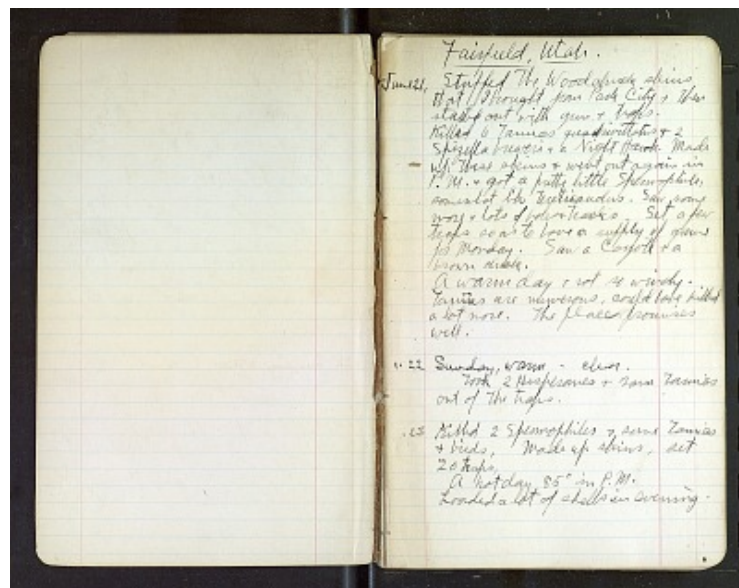 Fairfield, Utah.
June 21, Stuffed The Woodchuck skins
that I brought from Park City & then
started out with gun & traps.
Killed 6 Tamias quadrivittatus & 2
Spizella breweri & a Night Hawk. Made
up these skins & went out again in
P.M. & got a pretty little Spermophile,
somewhat like
Saw some
more & lots of holes & tracks. Set a few
traps so as to have a supply of game
for Monday. Saw a Coyote & a
brown
A warm day & not so windy.
Tamias are numerous, could have killed
a lot more. The place promises
well.
" 22 Sunday, warm - clear.
Took 2 Hesperomys & some Tamias
out of the traps.
" 23 Killed 2 Spermophiles & some Tamias
& birds, Made up skins, set
20 traps.
A hot day 85° in P.M.
Loaded a lot of shells in evening.